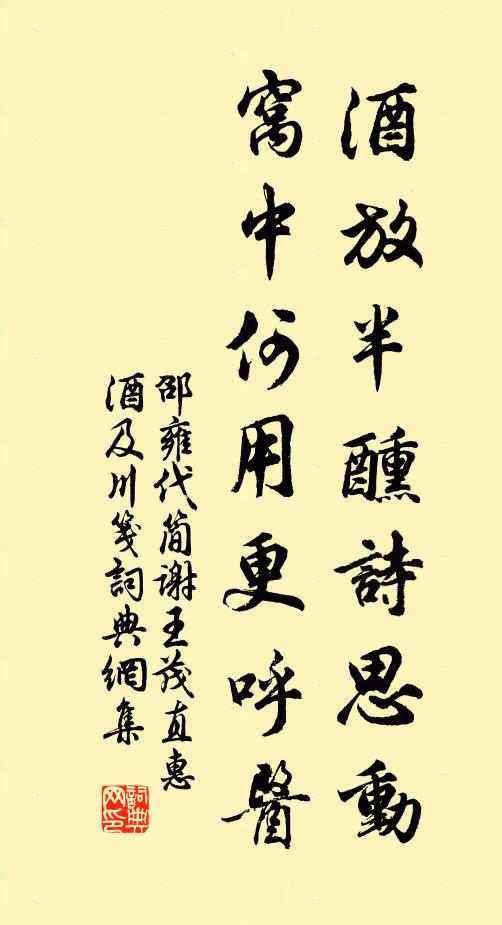 酒放半醺詩思動
窩中何用更呼醫
邵雍代簡謝王茂直惠
酒及川箋詞典網集
詞典网印